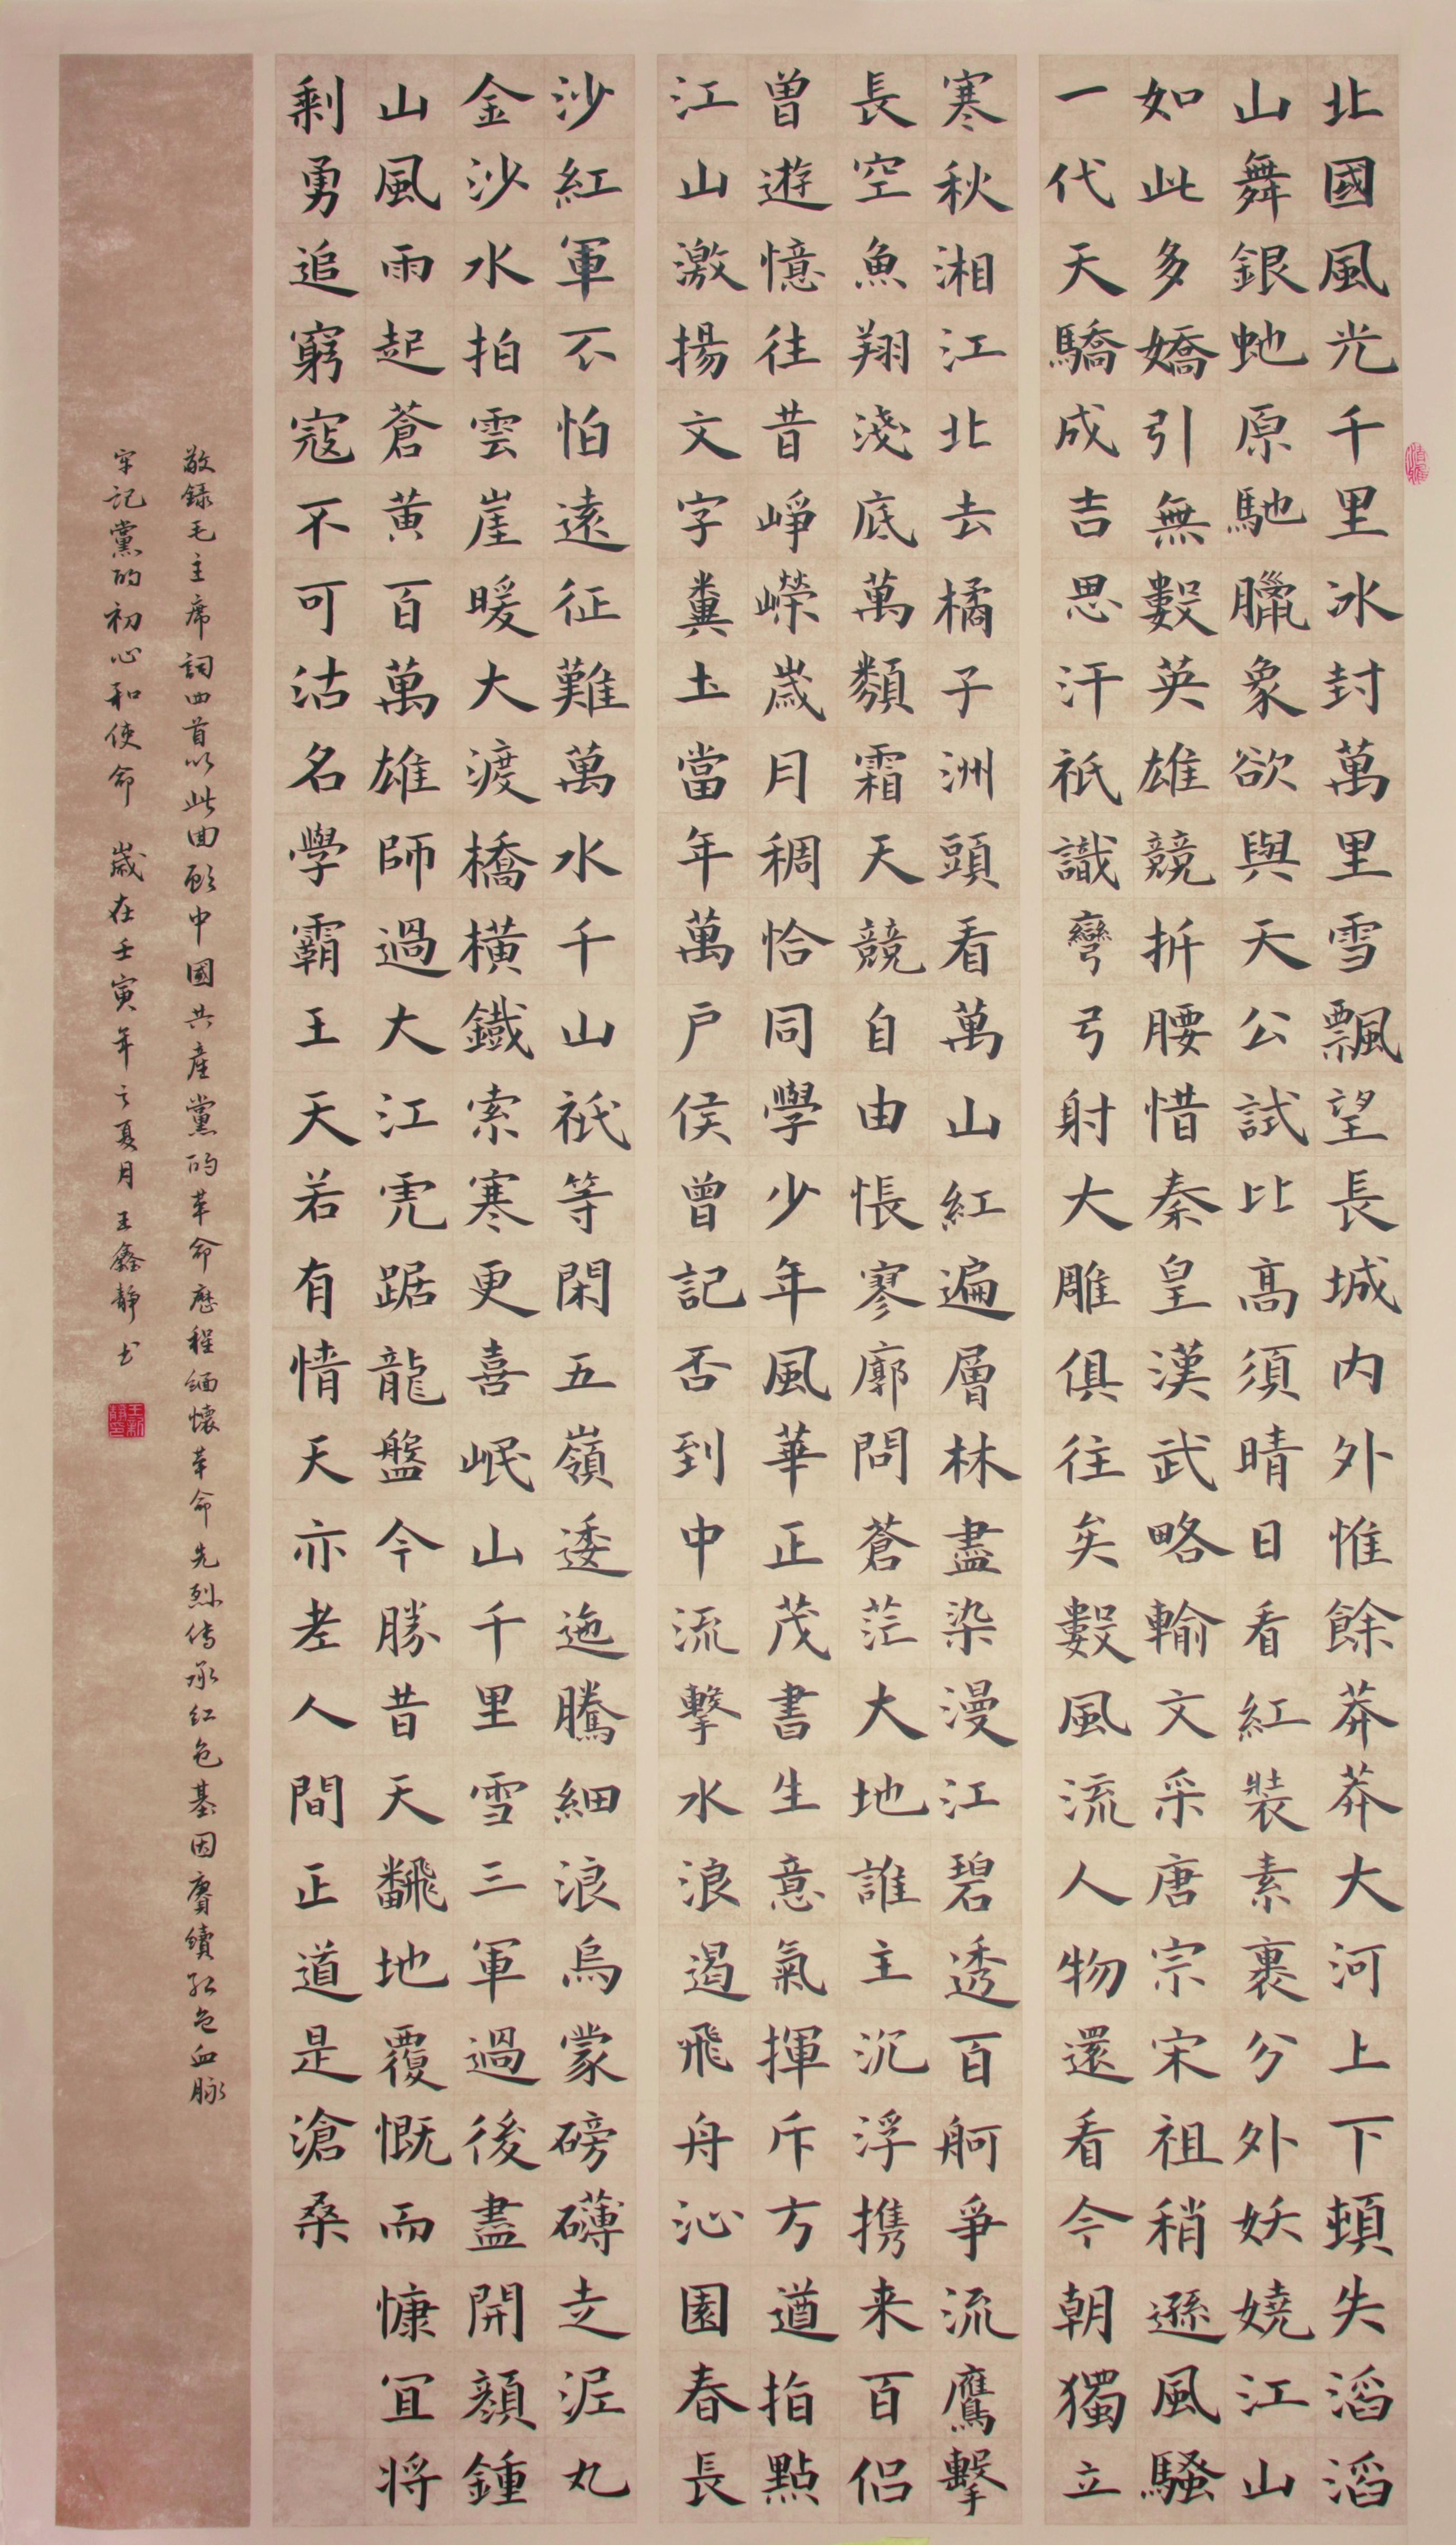 北國風光千里冰封萬里雪飄望長城内外惟餘莽莽大河上下頓失滔滔
山舞銀虵原馳臘象欲與天公試比髙須晴日看紅裝素裹分外妖嬈江山
如此多嬌引無數英雄競折腰惜秦皇漢武略輸文采唐宗宋祖稍遜風騷
一代天驕成吉思汗祇識彎弓射大雕俱往矣數風流人物還看今朝獨立
寒秋湘江北去橘子洲頭看萬山紅遍層林盡染漫江碧透百舸爭流鷹擊
長空魚翔淺底萬類霜天競自由悵寥廓問蒼茫大地誰主沉浮携来百侣
曾遊憶往昔崢嶸歲月稠恰同學少年風華正茂書生意氣揮斥方遒指點
江山激揚文字糞土當年萬户侯曾記否到中流擊水浪遏飛舟沁園春長
沙紅軍不怕遠征難萬水千山祇等閑五嶺逶迤騰細浪烏蒙磅礴走泥丸
金沙水拍雲崖暖大渡橋橫鐵索寒更喜岷山千里雪三軍過後盡開顔鍾
山風雨起蒼黄百萬雄師過大江虎踞龍盤今勝昔天飜地覆慨而慷宜将
剩勇追窮寇不可沽名學霸王天若有情天亦老人間正道是滄桑
敬録毛主席詞四首以此回顧中國共產黨的革命歷程緬懷革命先烈传承红色基因賡續红色血脉
牢記黨的初心和使命 歲在壬寅年之夏月王鑫静书